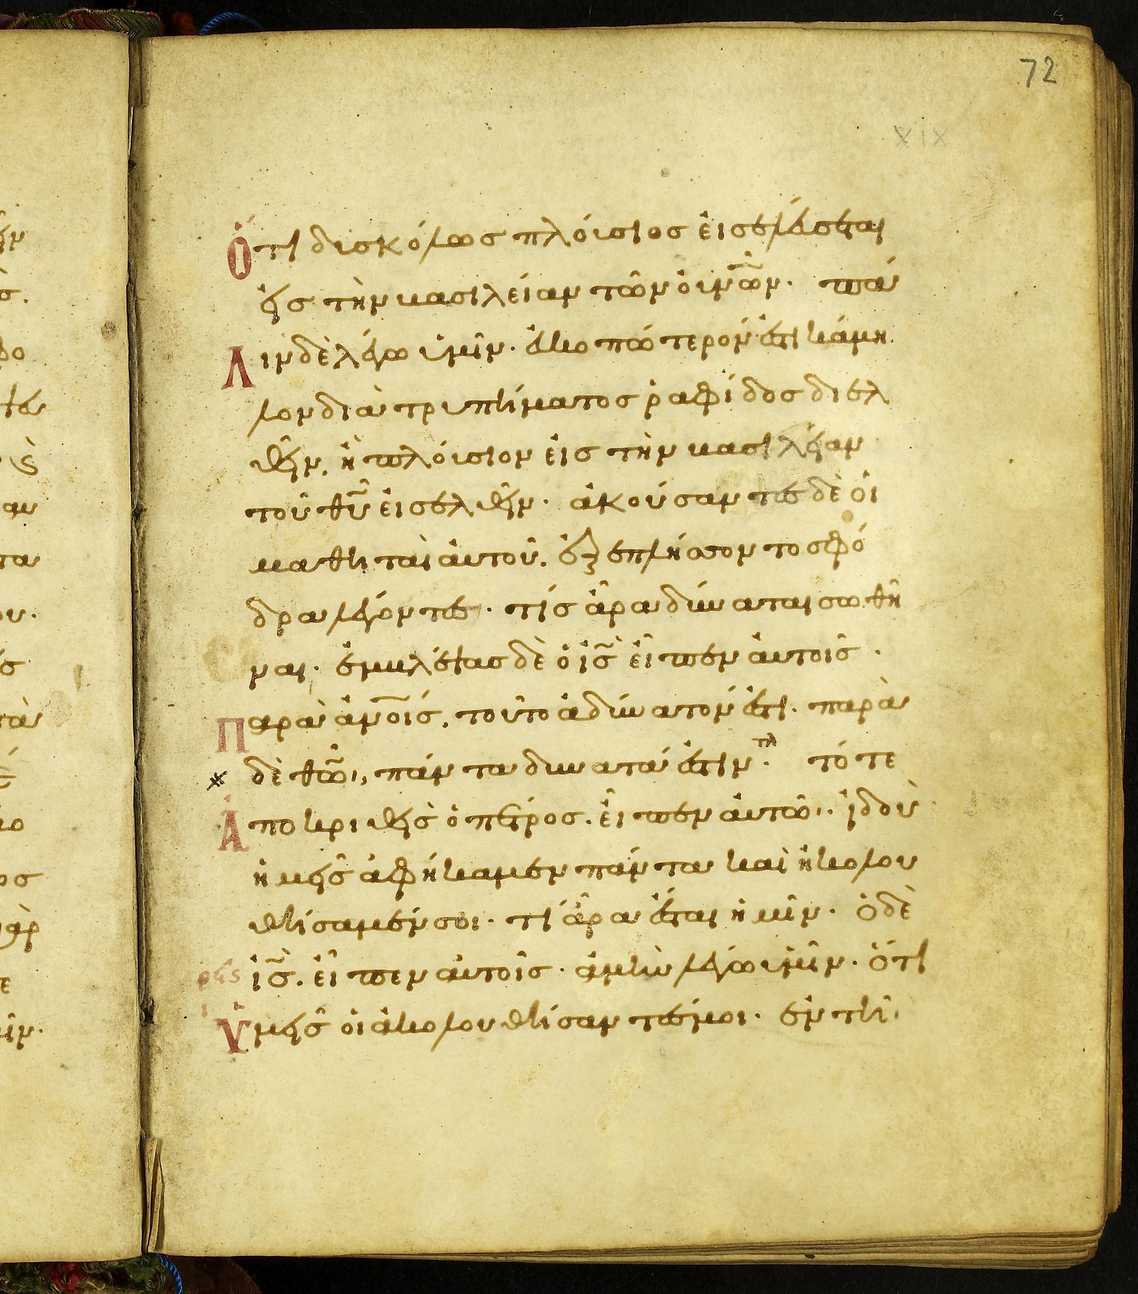 72
XIX
Ὅτι δισκόλωσ πλόισιοσ ἐισελέυσεται
ἐισ τὴν βασιλείαν τῶν ὀυν͂ῶν· πάν
Λιν δὲ λέγω ὑμῖν· ἐυκοπώτερόν ἐστι κάμη
λον διὰ τρυπήματοσ ῥαφίδοσ διελ
θεῖν, ἢ πλόισιον ἐισ τὴν βασιλείαν
τοῦ θῦ ἐισελθεῖν· ἀκούσαντεσ δὲ ὁι
μαθηταὶ ἀυτοῦ. ἐξεπλήσσοντο σφό
δρα λέγοντεσ· τίσ ἄρα δύναται σωθῆ
ναι· ἐμβλέψασ δὲ ὁ ἰσ̃ ἐῖπεν ἀυτοῖσ·
Παρὰ ἀν͂οισ, τοῦτο ἀδύνατόν ἐστι· παρὰ
δὲ θῶ, πάντα δυνατά ἐστιν· τλ τότε
Ἀποκριθεὶσ ὁ πέτροσ. ἐῖπεν ἀυτῶ· ἰδοὺ
ἡμεῖσ ἀφήκαμεν πάντα καὶ ἠκολου
θήσαμέν σοι· τί ἄρα ἔσται ἡμῖν· ὁ δὲ
ἰσ̃. ἐῖπεν ἀυτοῖσ· ἀμὴν λέγω ὑμῖν· ὅτι
Ὑμεῖσ ὁι ἀκολουθήσαντέσ μοι· ἐν τῆ